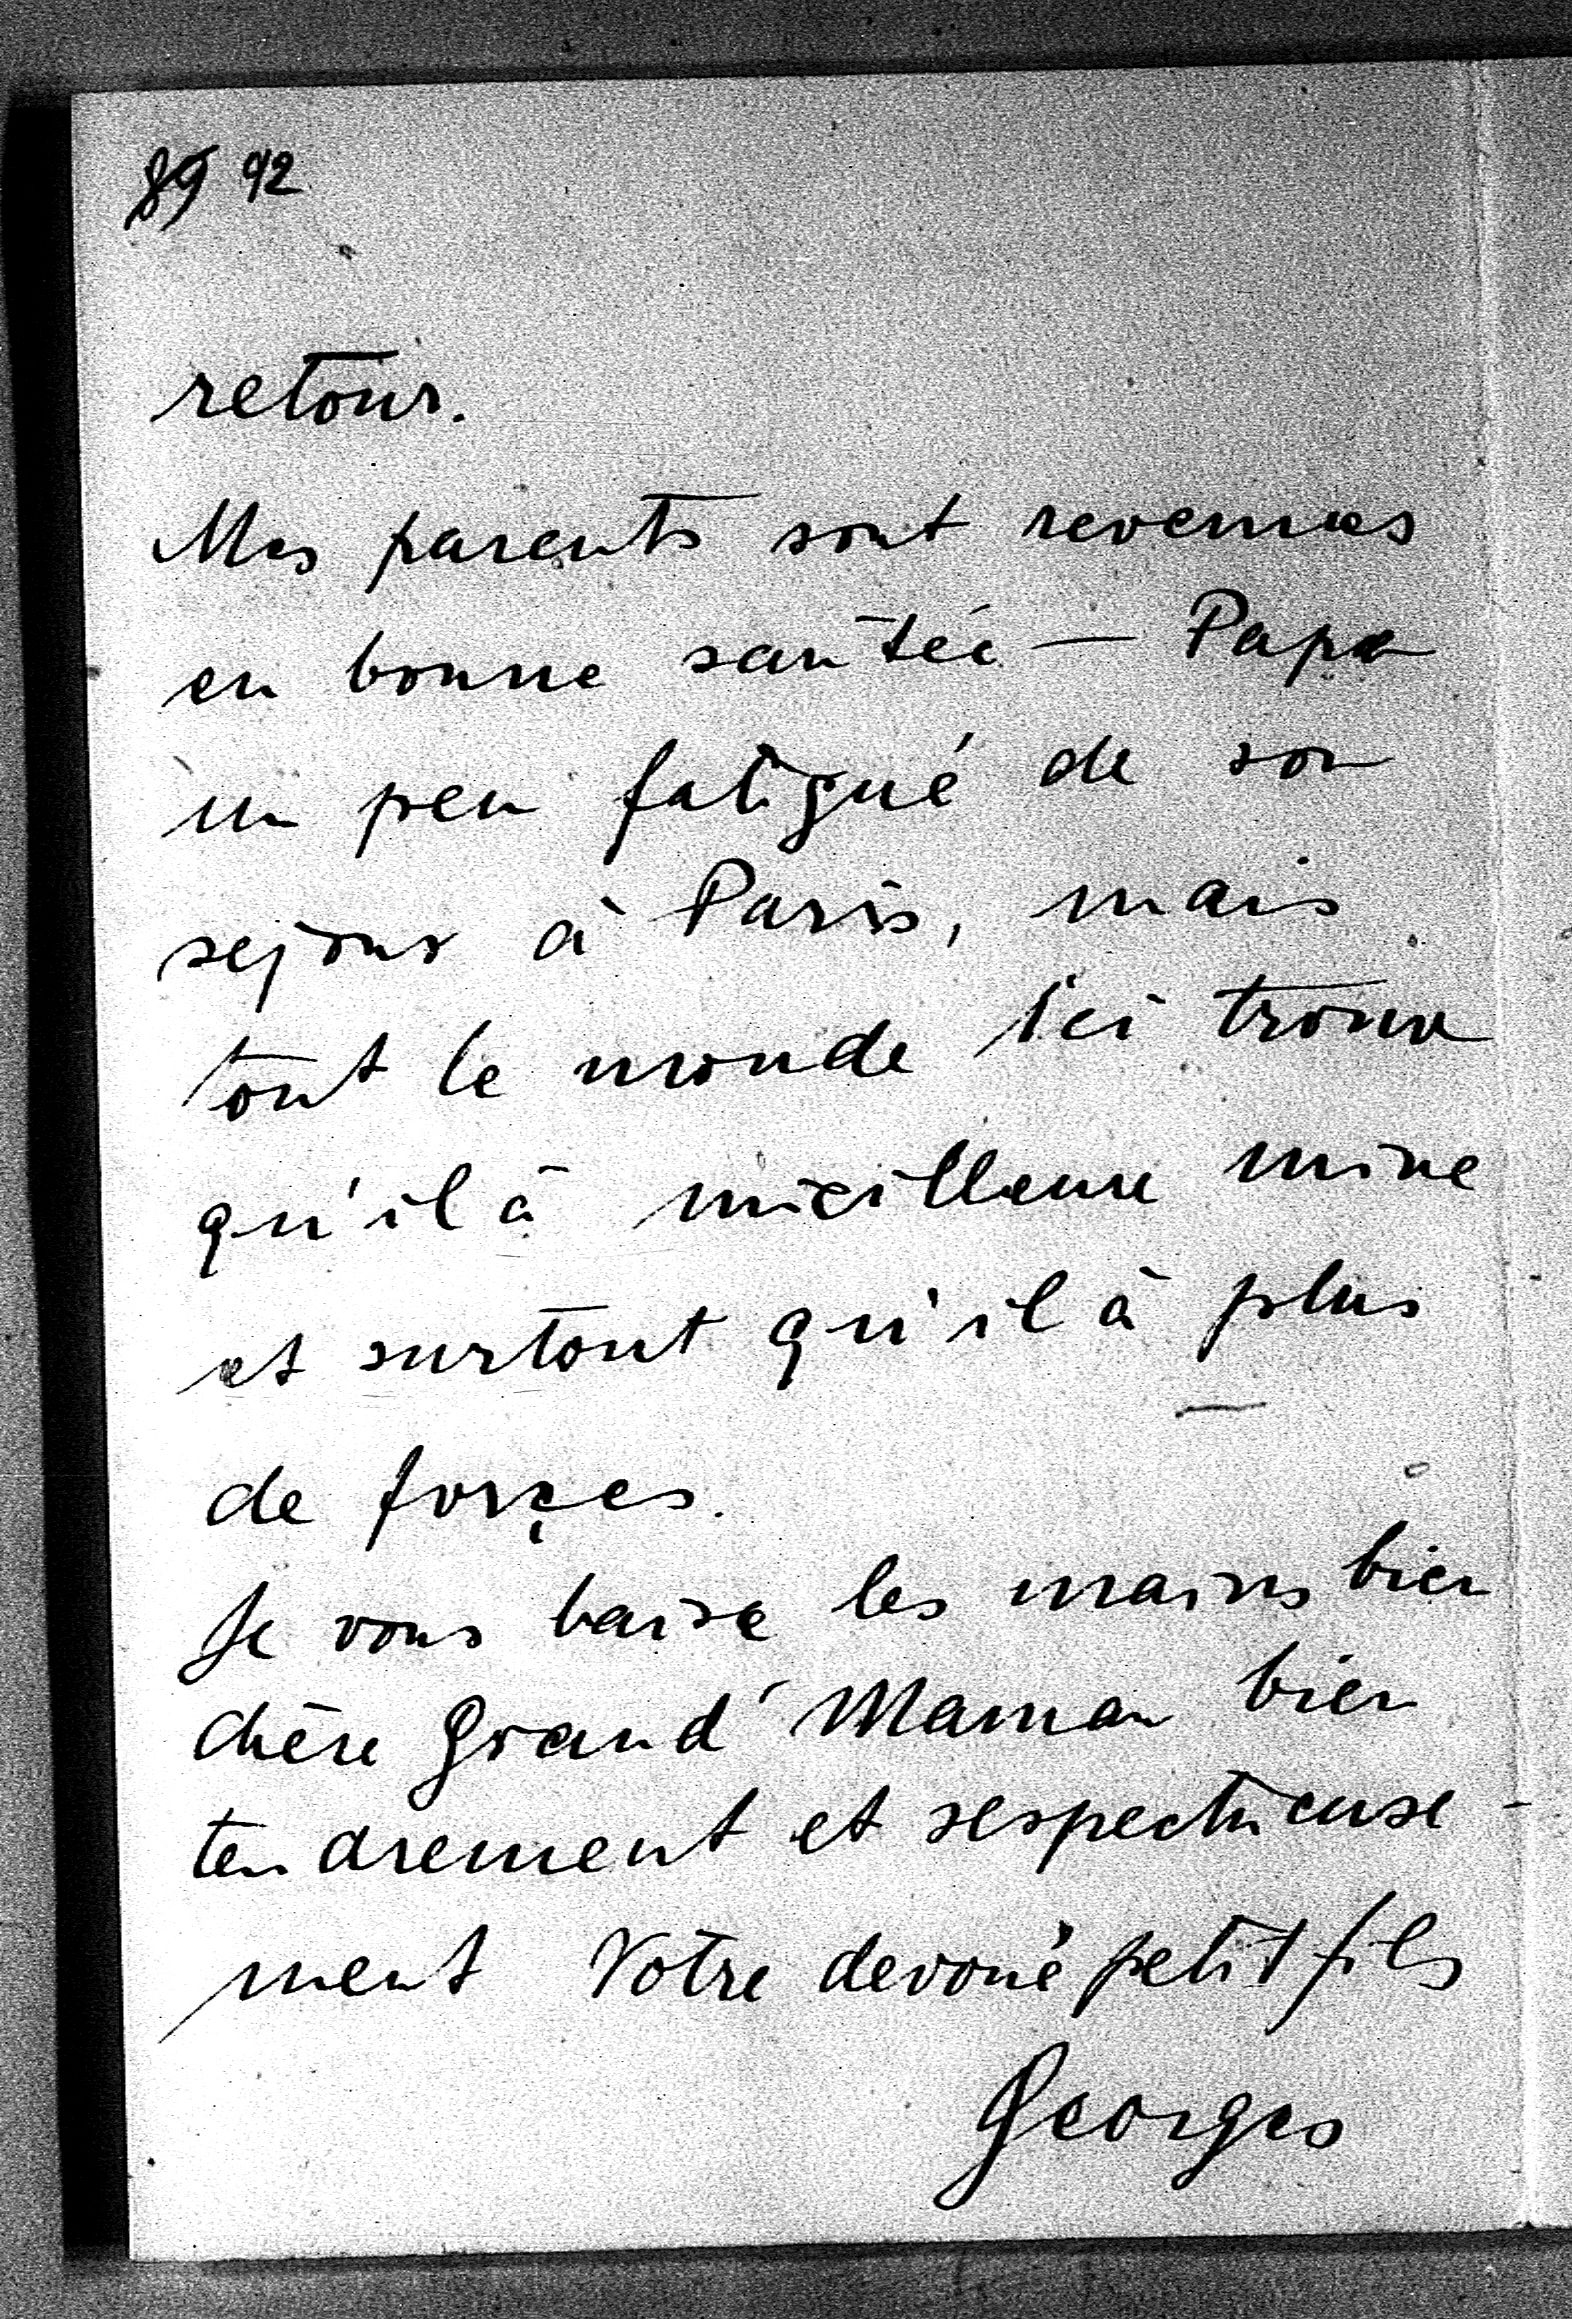 89 92
retour.
Mes parents sont revenues
en bonne santée — Papa
un peu fatigué de son
sejour à Paris, mais
tout le monde ici trouve
qu'il à meilleure mine
et surtout qu'il à plus
de forçes.
Je vous baise les mains bien
chère Grand'Maman bien
tendrement et respectueuse-
ment Votre devoué petit fils
Georges